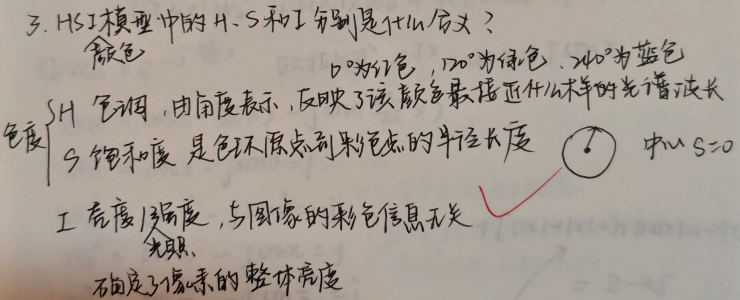 3. HSI模型中的H、S和I分别是什么含义？
颜色
0°为红色，120°为绿色、240°为蓝色
色度
H 色调，由角度表示，反映了该颜色最接近什么样的光谱波长
S 饱和度 是色环原点到彩色点的半径长度 中心S=0
I 亮度/强度，与图像的彩色信息无关
光照
确定了像素的整体亮度